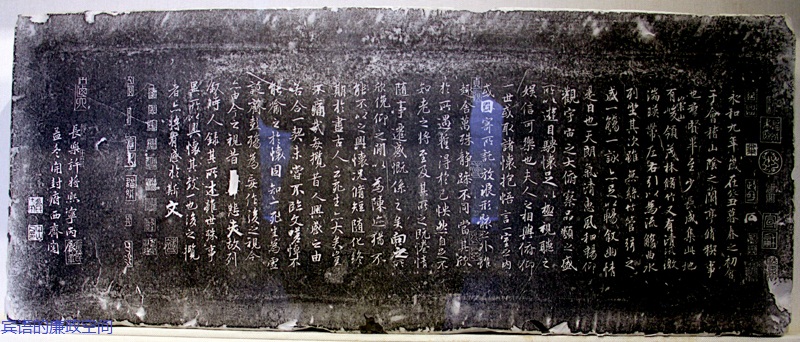 永和九年歲在癸丑暮春之初會
于會稽山陰之蘭亭脩稧事
也羣賢畢至少長咸集此地
有崇山峻領茂林脩竹又有清流激
湍暎帶左右引以為流觴曲水
列坐其次雖無絲竹管弦之
盛一觴一詠亦足以暢敘幽情
是日也天朗氣清惠風和暢仰
觀宇宙之大俯察品類之盛
所以遊目騁懷足以極視聽之
娛信可樂也夫人之相與俯仰
一世或取諸懷抱悟言一室之內
或因寄所託放浪形骸之外雖
趣舍萬殊靜躁不同當其欣
於所遇蹔得於己怏然自足不
知老之將至及其所之既惓情
隨事遷感慨係之矣向之所
欣俛仰之閒以為陳迹猶不
能不以之興懷況脩短隨化終
期於盡古人云死生亦大矣豈
不痛哉每攬昔人興感之由
若合一契未嘗不臨文嗟悼不
能喻之於懷固知一死生為虛
誕齊彭殤為妄作後之視今
亦由今之視昔悲夫故列
敘時人錄其所述雖世殊事
異所以興懷其致一也後之攬
者亦將有感於斯文
長樂許將熙寧丙辰
孟冬開封府西齋閱
宾语的廉政空间